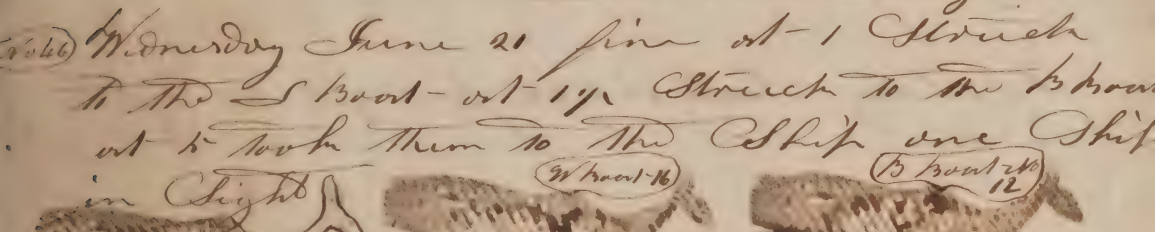 Wednesday June 21 fine at 1 Struck
to the S Boat - at 1½ Struck to the B Boat
at 5 took them to the Ship one Ship
in Sight
W Boat 16
B Boat
12